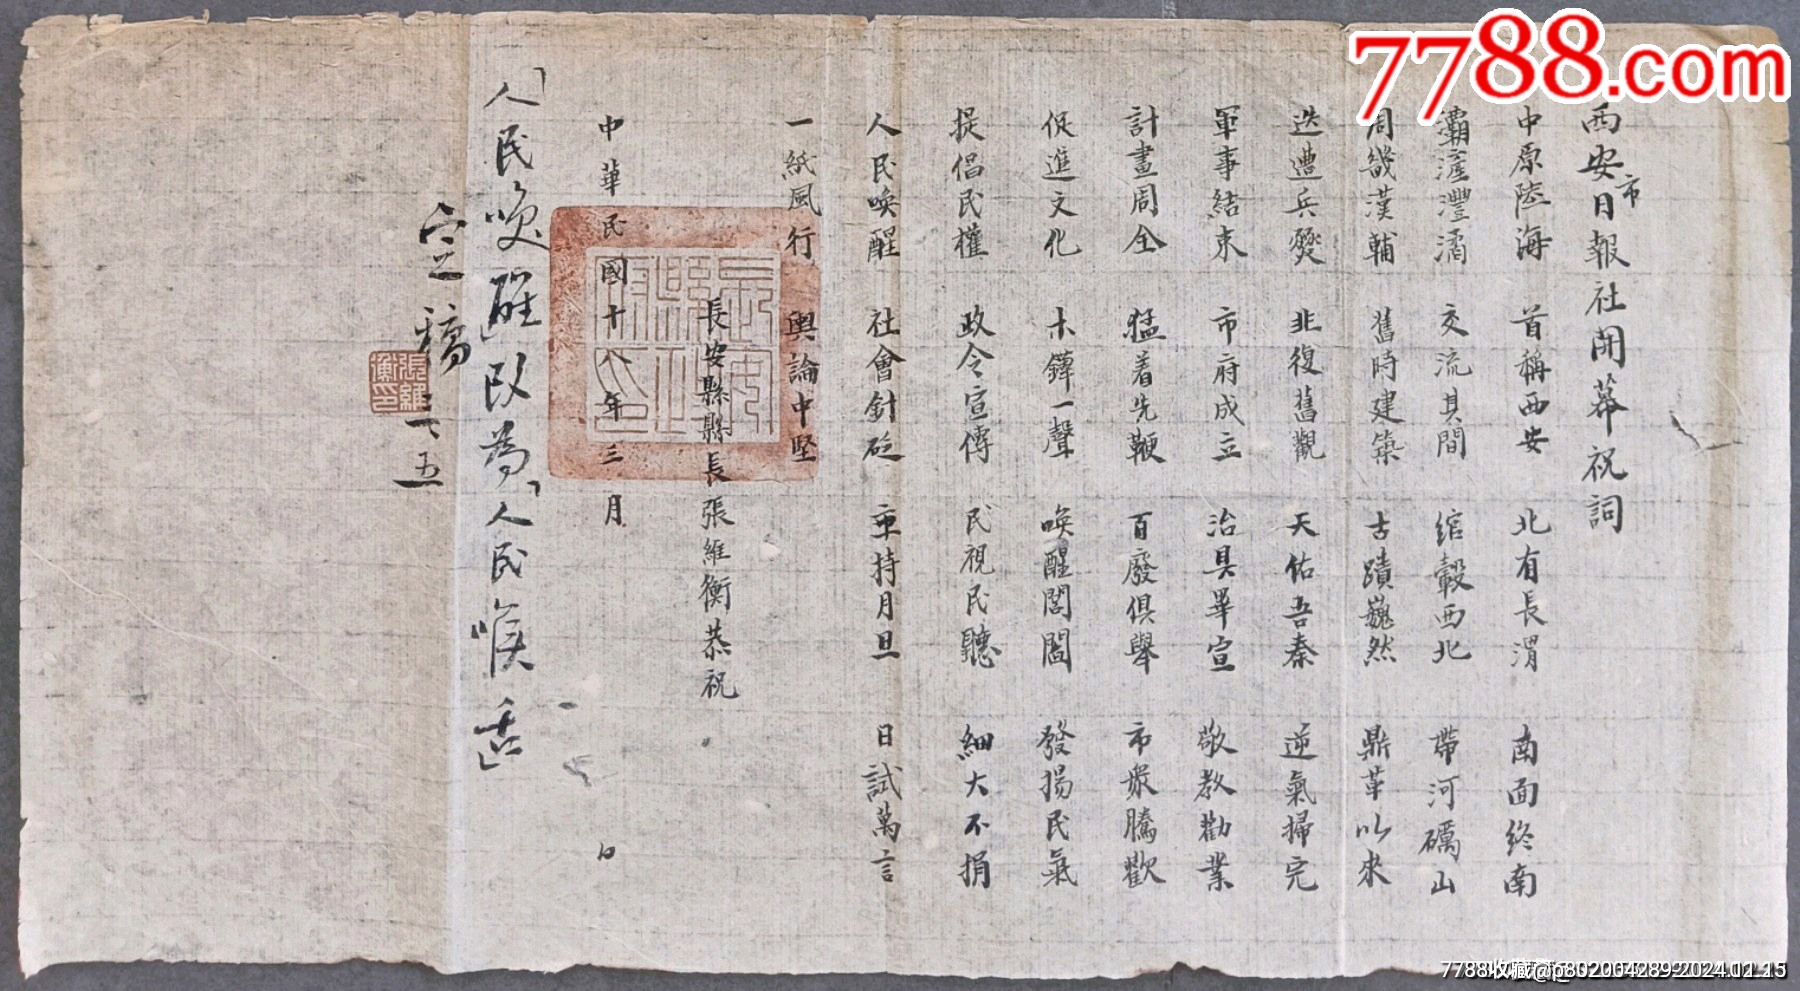 西安市日報社開幕祝詞
中原陸海 首稱西安 北有長渭 南面終南
灞滻灃潏 交流其間 綰轂西北 帶河礪山
周畿漢輔 舊時建築 古蹟巍然 鼎革以來
迭遭兵燹 非復舊觀 天佑吾秦 逆氣掃完
軍事結束 市府成立 治具畢宣 敬教勸業
計畫周全 猛着先鞭 百廢俱舉 市衆騰歡
促進文化 木鐸一聲 喚醒閭閻 發揚民氣
提倡民權 政令宣傳 民視民聽 細大不捐
人民喚醒 社會針砭 主持月旦 日試萬言
一紙風行 輿論中堅
長安縣縣長張維衡恭祝
中華民國十年三月 日
「人民喚醒」改為「人民喉舌」
定稿 三五
張維衡印
7788.com
7788收藏@p802004289-2024.12.15